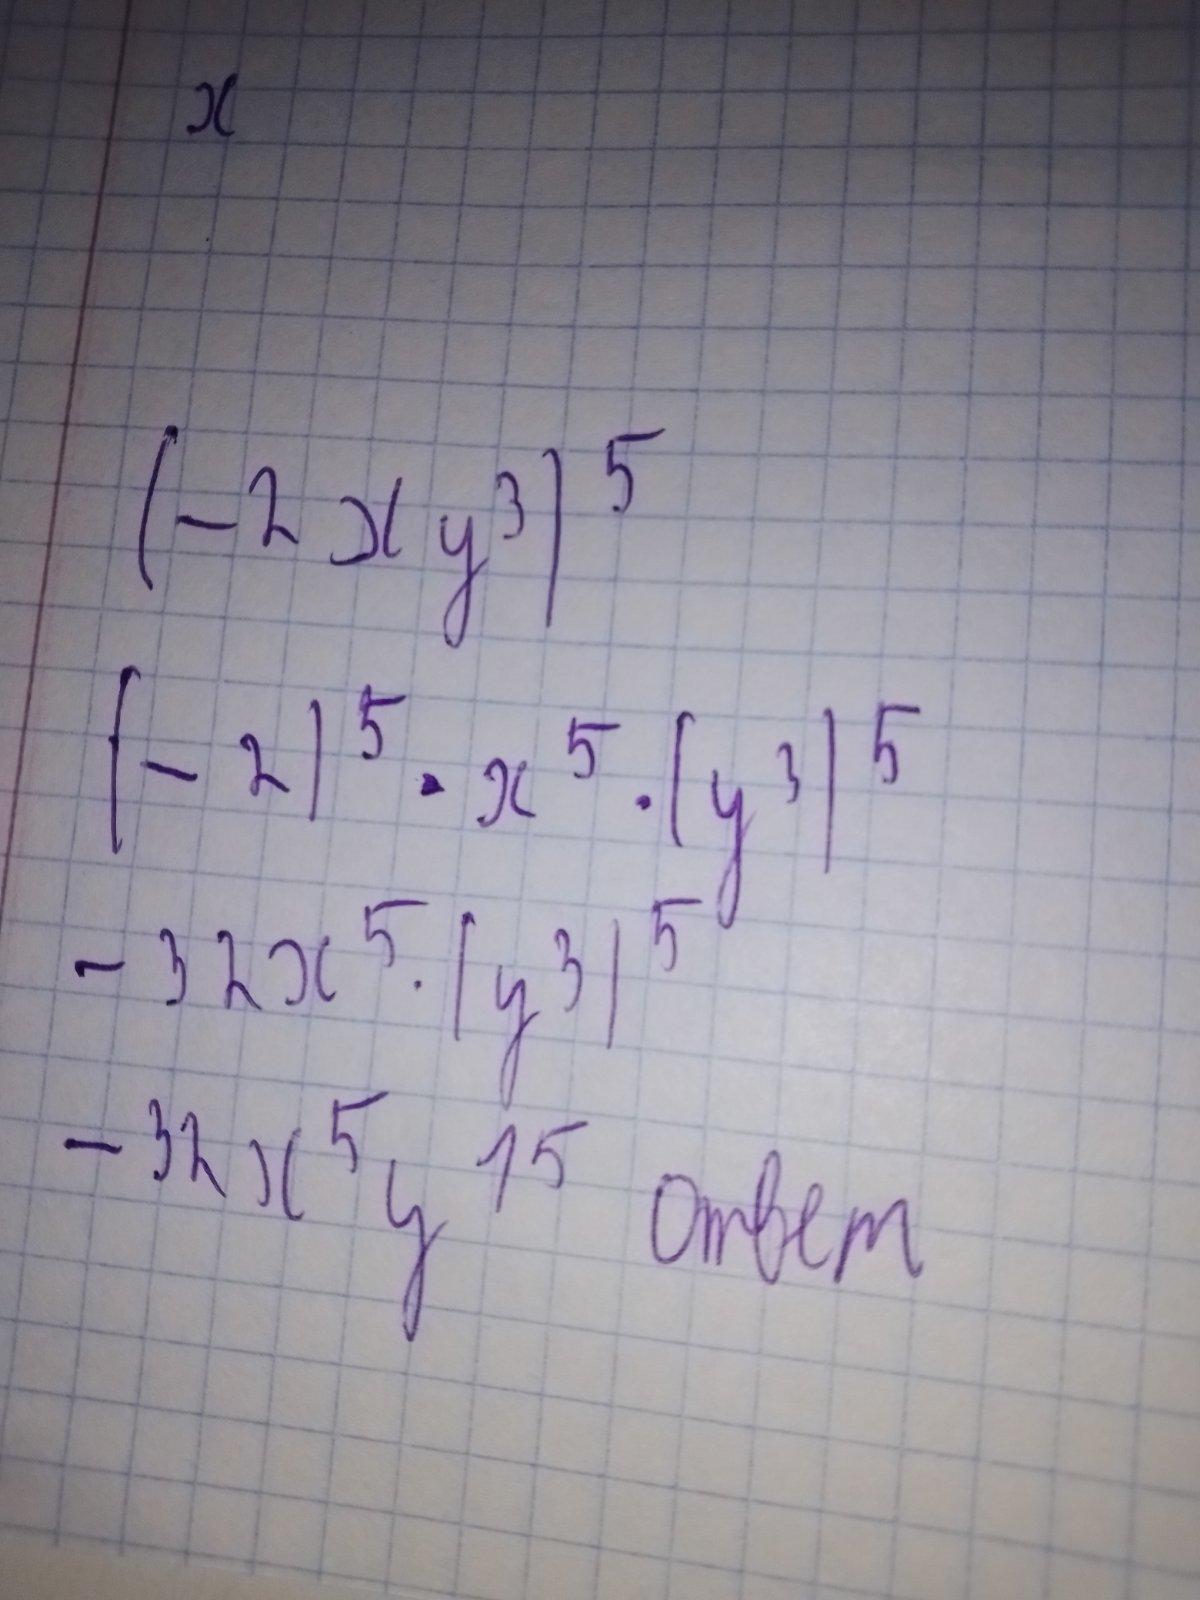 x
(-2xy³)⁵
(-2)⁵·x⁵·(y³)⁵
-32x⁵·(y³)⁵
-32x⁵y¹⁵ ответ